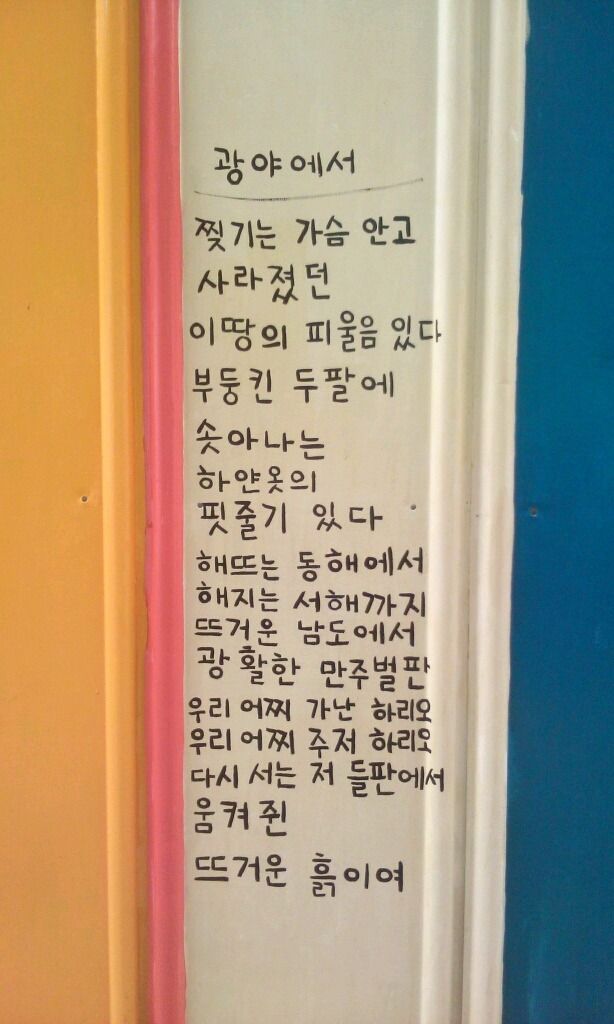 광야에서
찢기는 가슴 안고
사라졌던
이땅의 피울음 있다
부둥킨 두팔에
솟아나는
하얀옷의
핏줄기 있다
해뜨는 동해에서
해지는 서해까지
뜨거운 남도에서
광활한 만주벌판
우리 어찌 가난 하리오
우리 어찌 주저 하리오
다시 서는 저 들판에서
움켜쥔
뜨거운 흙이여